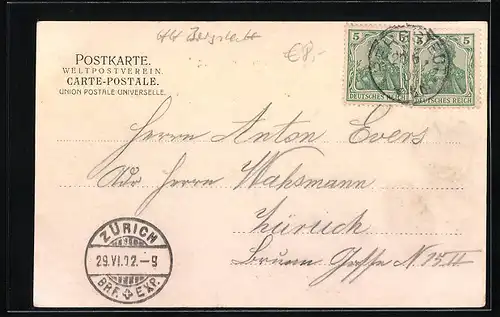 €8,-
POSTKARTE.
WELTPOSTVEREIN.
CARTE-POSTALE.
UNION POSTALE UNIVERSELLE.
5 5
DEUTSCHES REICH DEUTSCHES REICH
Herrn Anton Evers
Adr Herrn Wahsmann
Zürich
Brunn Gasse N. 15 II
ZÜRICH
29.VI.02.-9
BRF. EXP.